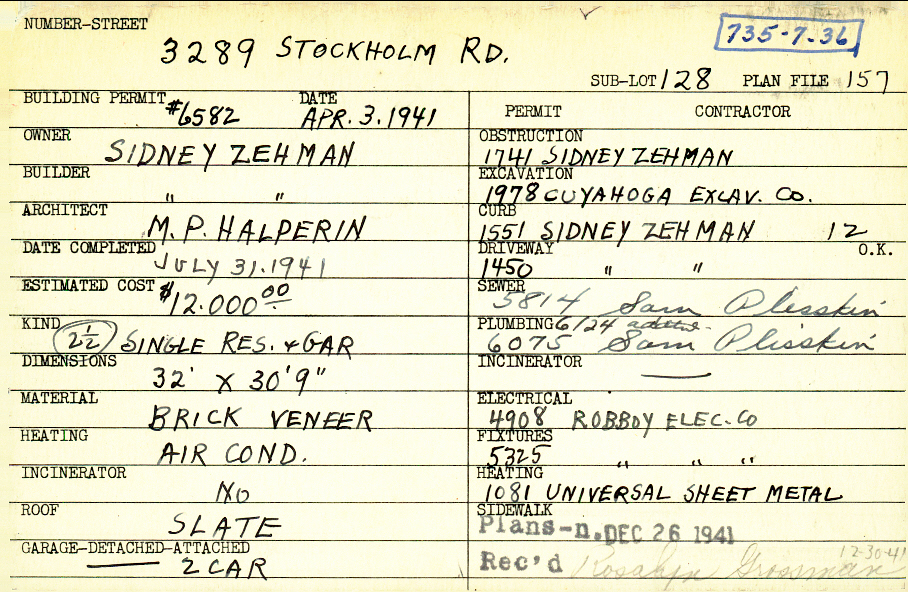 NUMBER-STREET
3289 STOCKHOLM RD.
735-7-36
SUB-LOT 128 PLAN FILE 157
BUILDING PERMIT #6582 DATE APR. 3. 1941
OWNER SIDNEY ZEHMAN
BUILDER " "
ARCHITECT M. P. HALPERIN
DATE COMPLETED JULY 31. 1941
ESTIMATED COST $12.000 00
KIND 2 1/2 SINGLE RES. & GAR
DIMENSIONS 32' X 30' 9"
MATERIAL BRICK VENEER
HEATING AIR COND.
INCINERATOR NO
ROOF SLATE
GARAGE-DETACHED-ATTACHED
—— 2 CAR
PERMIT CONTRACTOR
OBSTRUCTION
1741 SIDNEY ZEHMAN
EXCAVATION
1978 CUYAHOGA EXCAV. CO.
CURB
1551 SIDNEY ZEHMAN 12
DRIVEWAY O.K.
1450 " "
SEWER
5814 Sam Plisskin
PLUMBING 6/24
6075 Sam Plisskin
INCINERATOR
——
ELECTRICAL
4908 ROBBOY ELEC. CO
FIXTURES
5325 " " "
HEATING
1081 UNIVERSAL SHEET METAL
SIDEWALK
Plans-n. DEC 26 1941
12-30-41
Rec'd Rosalyn Grossman